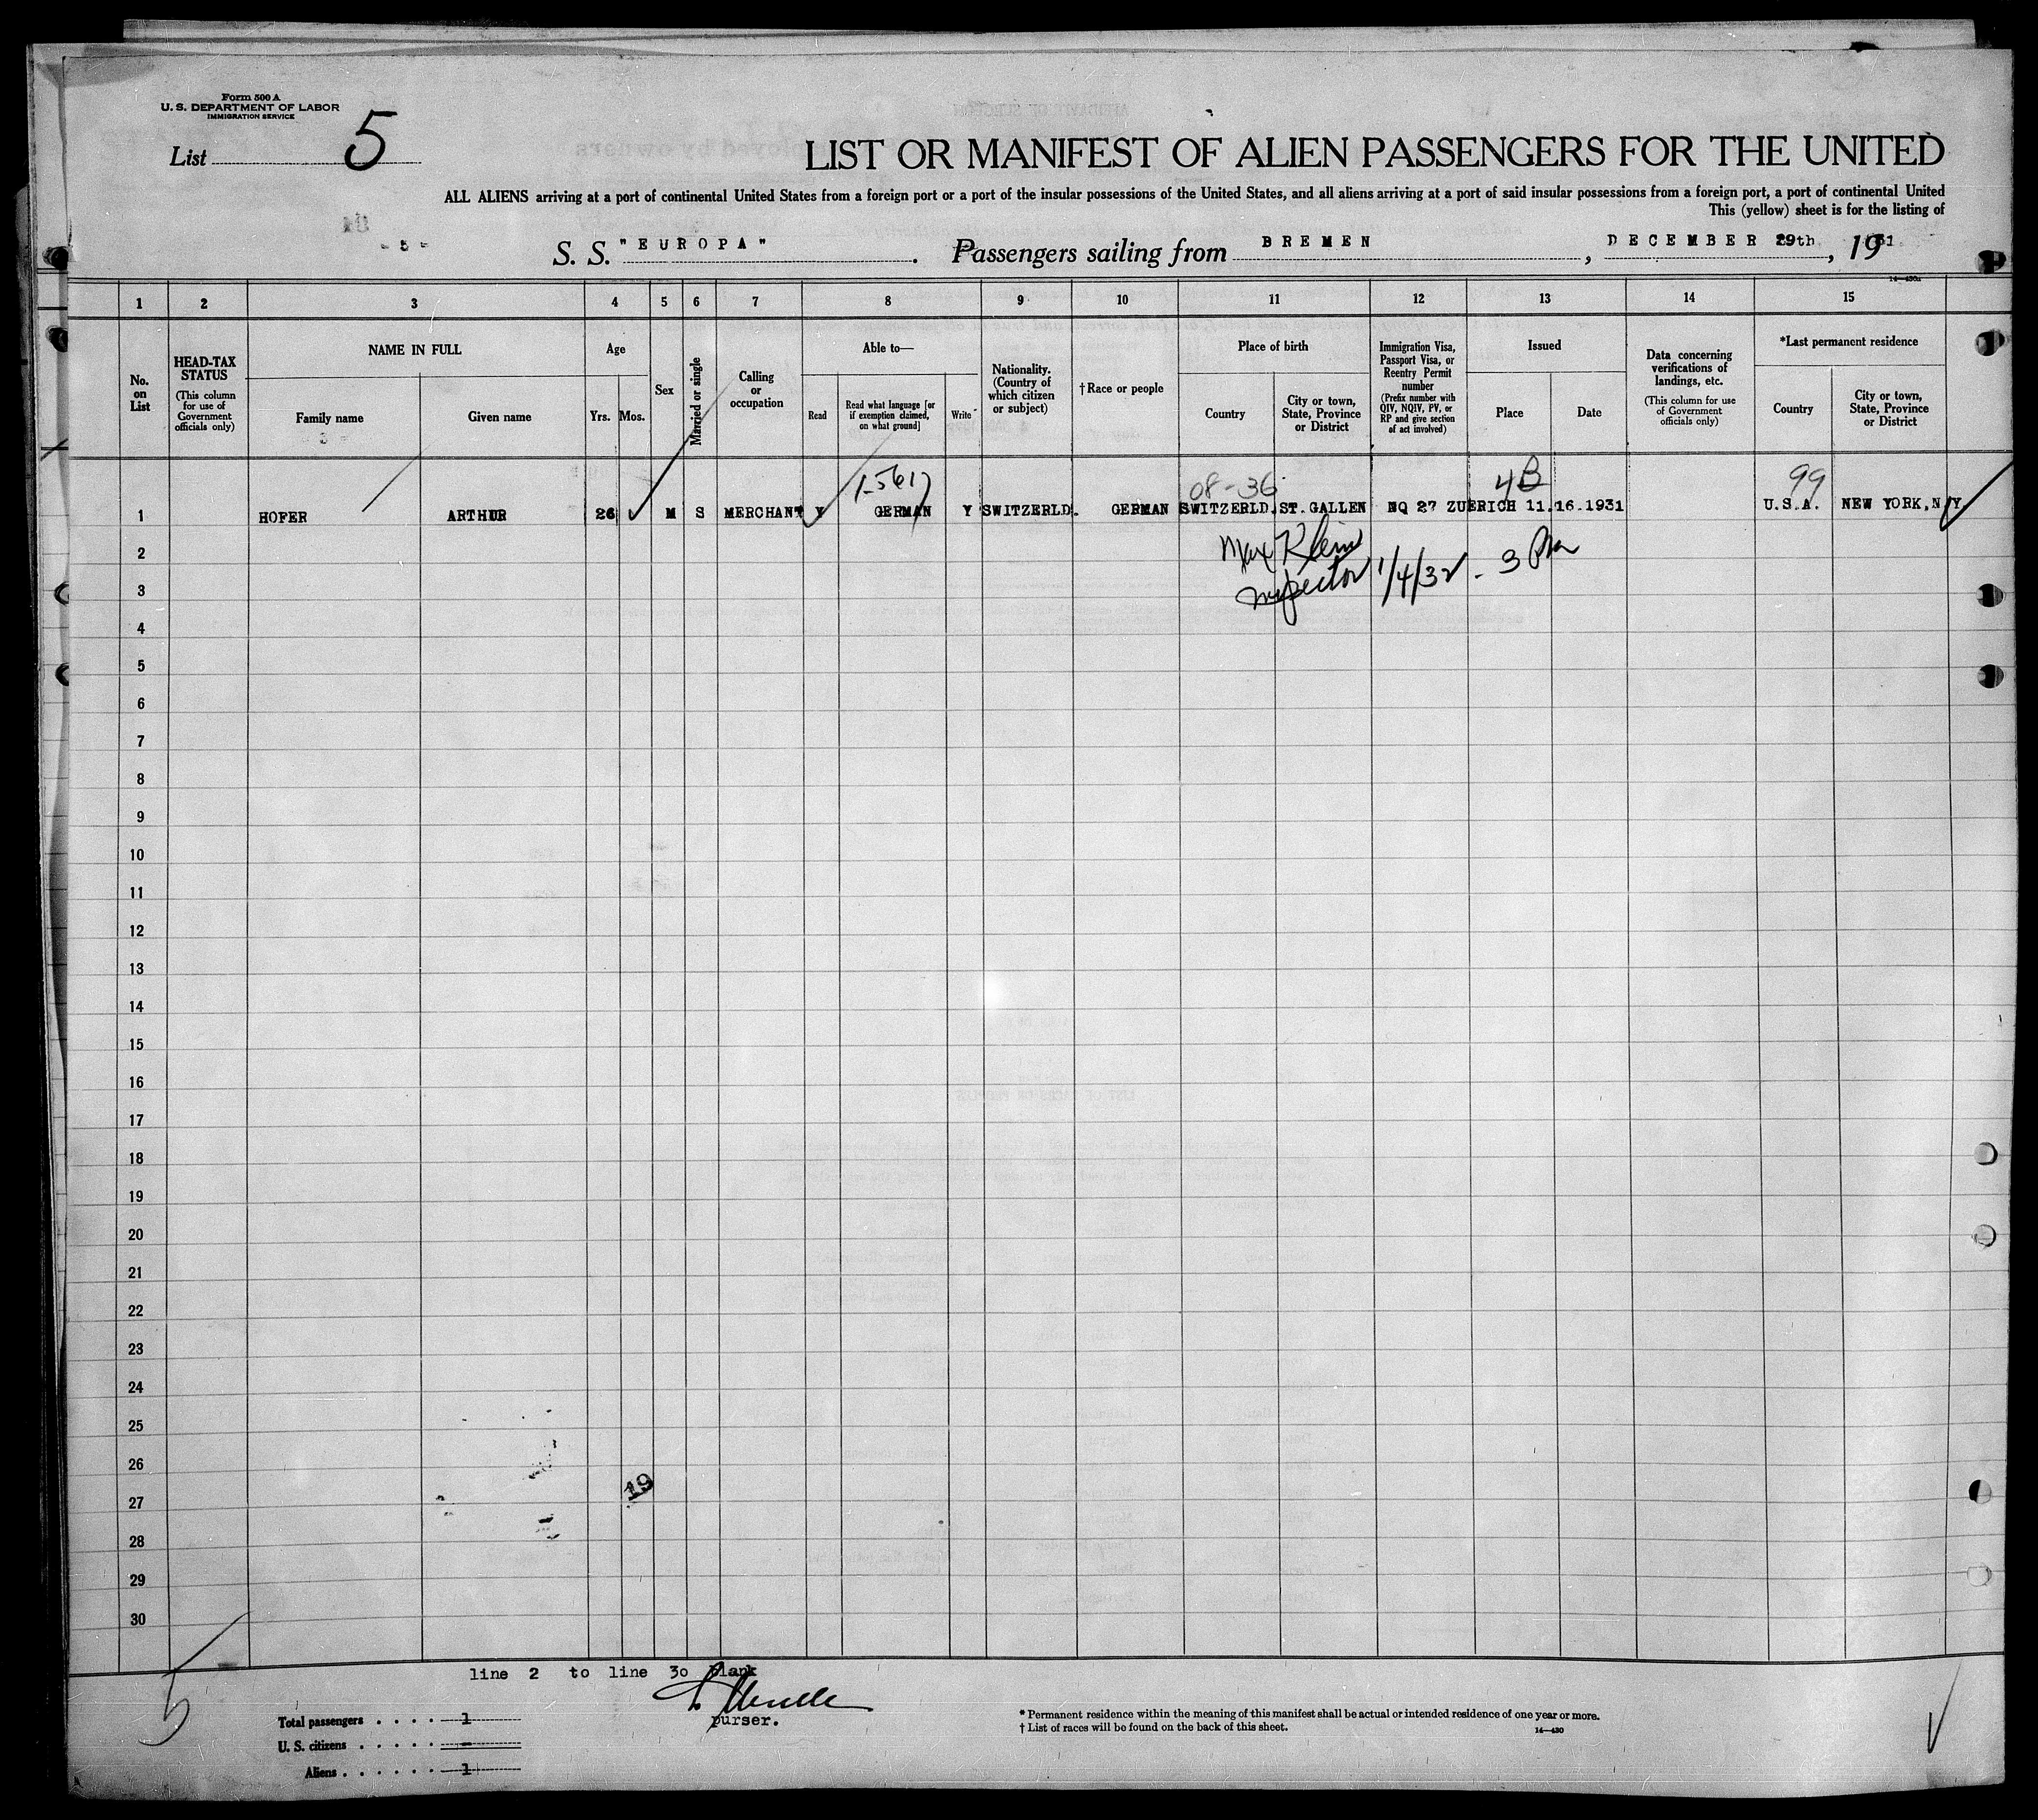 Form 500 A
U. S. DEPARTMENT OF LABOR
IMMIGRATION SERVICE
List 5
LIST OR MANIFEST OF ALIEN PASSENGERS FOR THE UNITED
ALL ALIENS arriving at a port of continental United States from a foreign port or a port of the insular possessions of the United States, and all aliens arriving at a port of said insular possessions from a foreign port, a port of continental United
This (yellow) sheet is for the listing of
S. S. "EUROPA". Passengers sailing from BREMEN, DECEMBER 29th, 1931
1 2 3 4 5 6 7 8 9 10 11 12 13 14 15
No. on List
HEAD-TAX STATUS (This column for use of Government officials only)
NAME IN FULL
Family name
Given name
Age
Yrs. Mos.
Sex
Married or single
Calling or occupation
Able to—
Read
Read what language [or if exemption claimed, on what ground]
Write
Nationality. (Country of which citizen or subject)
†Race or people
Place of birth
Country
City or town, State, Province or District
Immigration Visa, Passport Visa, or Reentry Permit number (Prefix number with QIV, NQIV, PV, or RP and give section of act involved)
Issued
Place
Date
Data concerning verifications of landings, etc. (This column for use of Government officials only)
*Last permanent residence
Country
City or town, State, Province or District
08-36 4B 99
1 HOFER ARTHUR 26 M S MERCHANT Y GERMAN Y SWITZERLD. GERMAN SWITZERLD. ST. GALLEN NQ 27 ZUERICH 11.16.1931 U.S.A. NEW YORK, N.Y.
Max Klein
Inspector 1/4/32 - 3 Pm
2
3
4
5
6
7
8
9
10
11
12
13
14
15
16
17
18
19
20
21
22
23
24
25
26
27
28
29
30
19
line 2 to line 30 blank
purser.
5
Total passengers . . . . 1
U. S. citizens . . . . . -
Aliens . . . . . . 1
* Permanent residence within the meaning of this manifest shall be actual or intended residence of one year or more.
† List of races will be found on the back of this sheet.
14—430